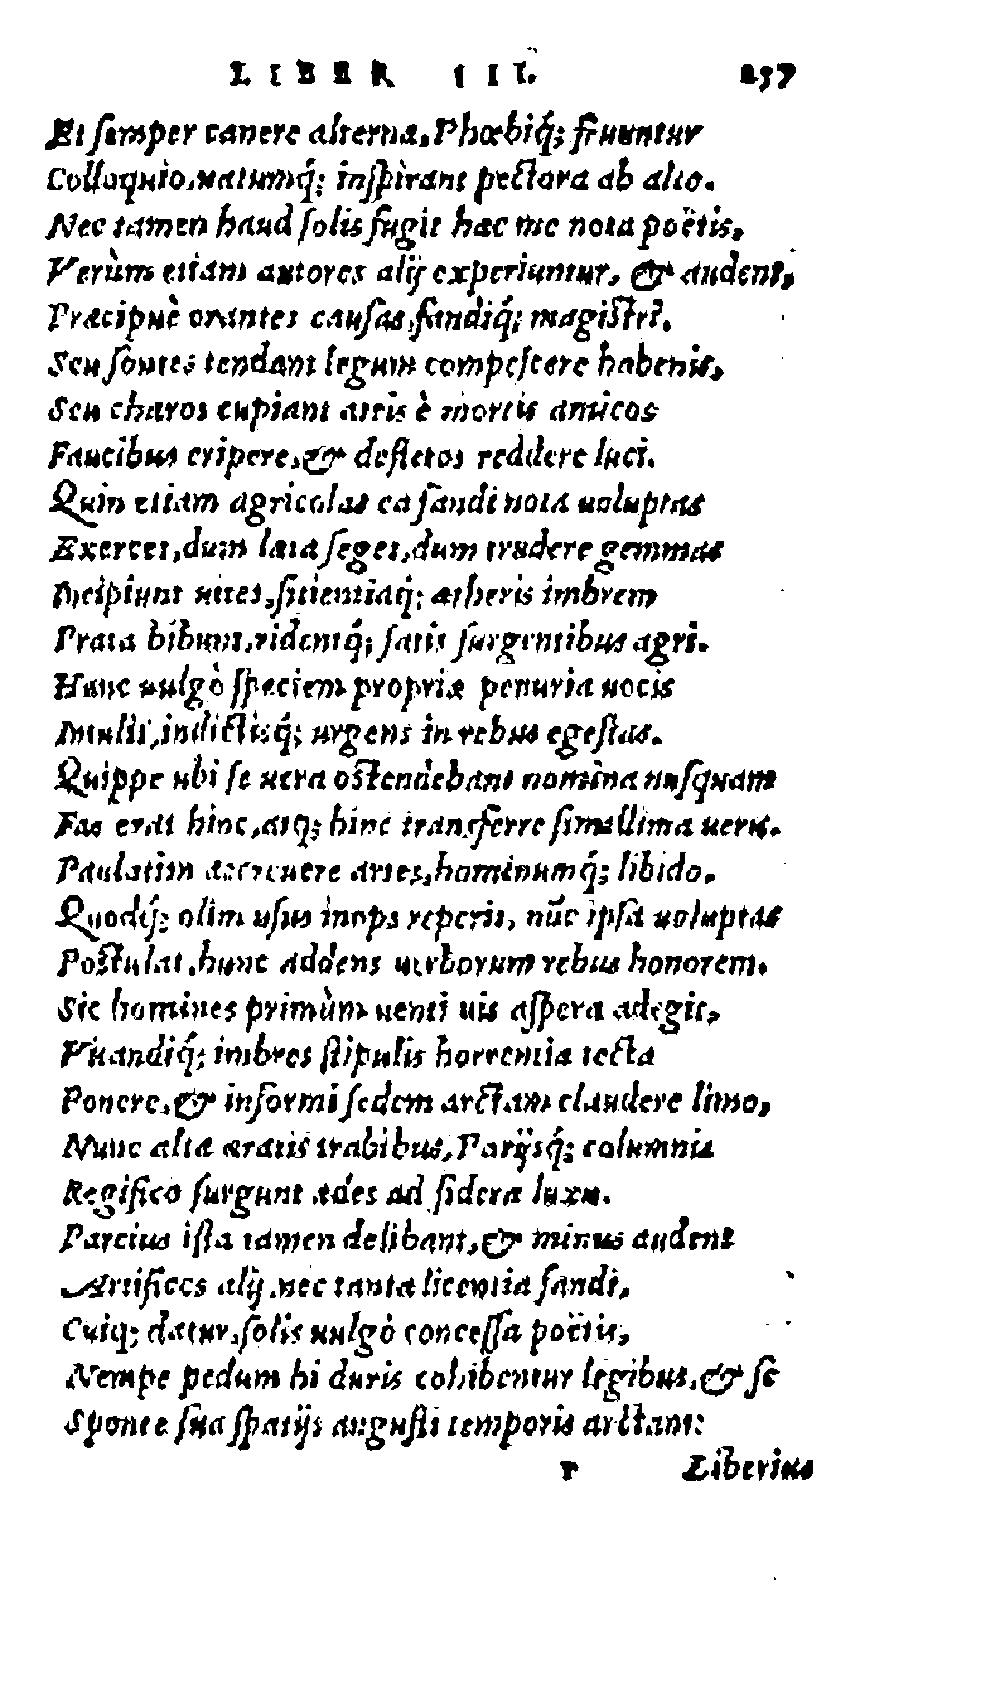 LIBER III. 257
Et semper canere alterna, Phœbiq́; fruuntur
Colloquio, uatumq́; inspirant pectora ab alto.
Nec tamen haud solis fugit hæc me nota poëtis,
Verùm etiam autores alij experiuntur, & audent,
Præcipuè orantes causas, fandiq́; magistri,
Seu sontes tendant legum compescere habenis,
Seu charos cupiant atris è mortis amicos
Faucibus eripere, & defletos reddere luci.
Quin etiam agricolas ea fandi nota uoluptas
Exercet, dum læta seges, dum trudere gemmas
Incipiunt uites, sitientiaq́; ætheris imbrem
Prata bibunt, ridentq́; satis surgentibus agri.
Hanc uulgò speciem propriæ penuria uocis
Intulit, indictisq́; urgens in rebus egestas.
Quippe ubi se uera ostendebant nomina nusquam
Fas erat hinc, atq; hinc transferre simillima ueris.
Paulatim accreuere artes, hominumq́; libido.
Quodq́; olim usus inops reperit, nũc ipsa uoluptas
Postulat, hunc addens uerborum rebus honorem.
Sic homines primùm uenti uis aspera adegit,
Vitandiq́; imbres stipulis horrentia tecta
Ponere, & informi sedem arctam claudere limo,
Nunc altæ æratis trabibus, Parijsq́; columnis
Regifico surgunt ædes ad sidera luxu.
Parcius ista tamen delibant, & minus audent
Artifices alij, nec tanta licentia fandi,
Cuiq; datur, solis uulgò concessa poëtis,
Nempe pedum hi duris cohibentur legibus, & se
Sponte sua spatijs angusti temporis arctant:
r Liberius